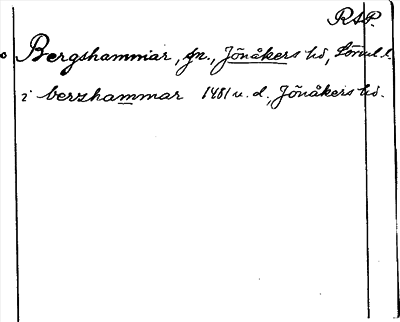 RSP.
Bergshammar, gn., Jönåkers hd, Sörml. l.
i berzhammar 1481 u. d., Jönåkers hd.